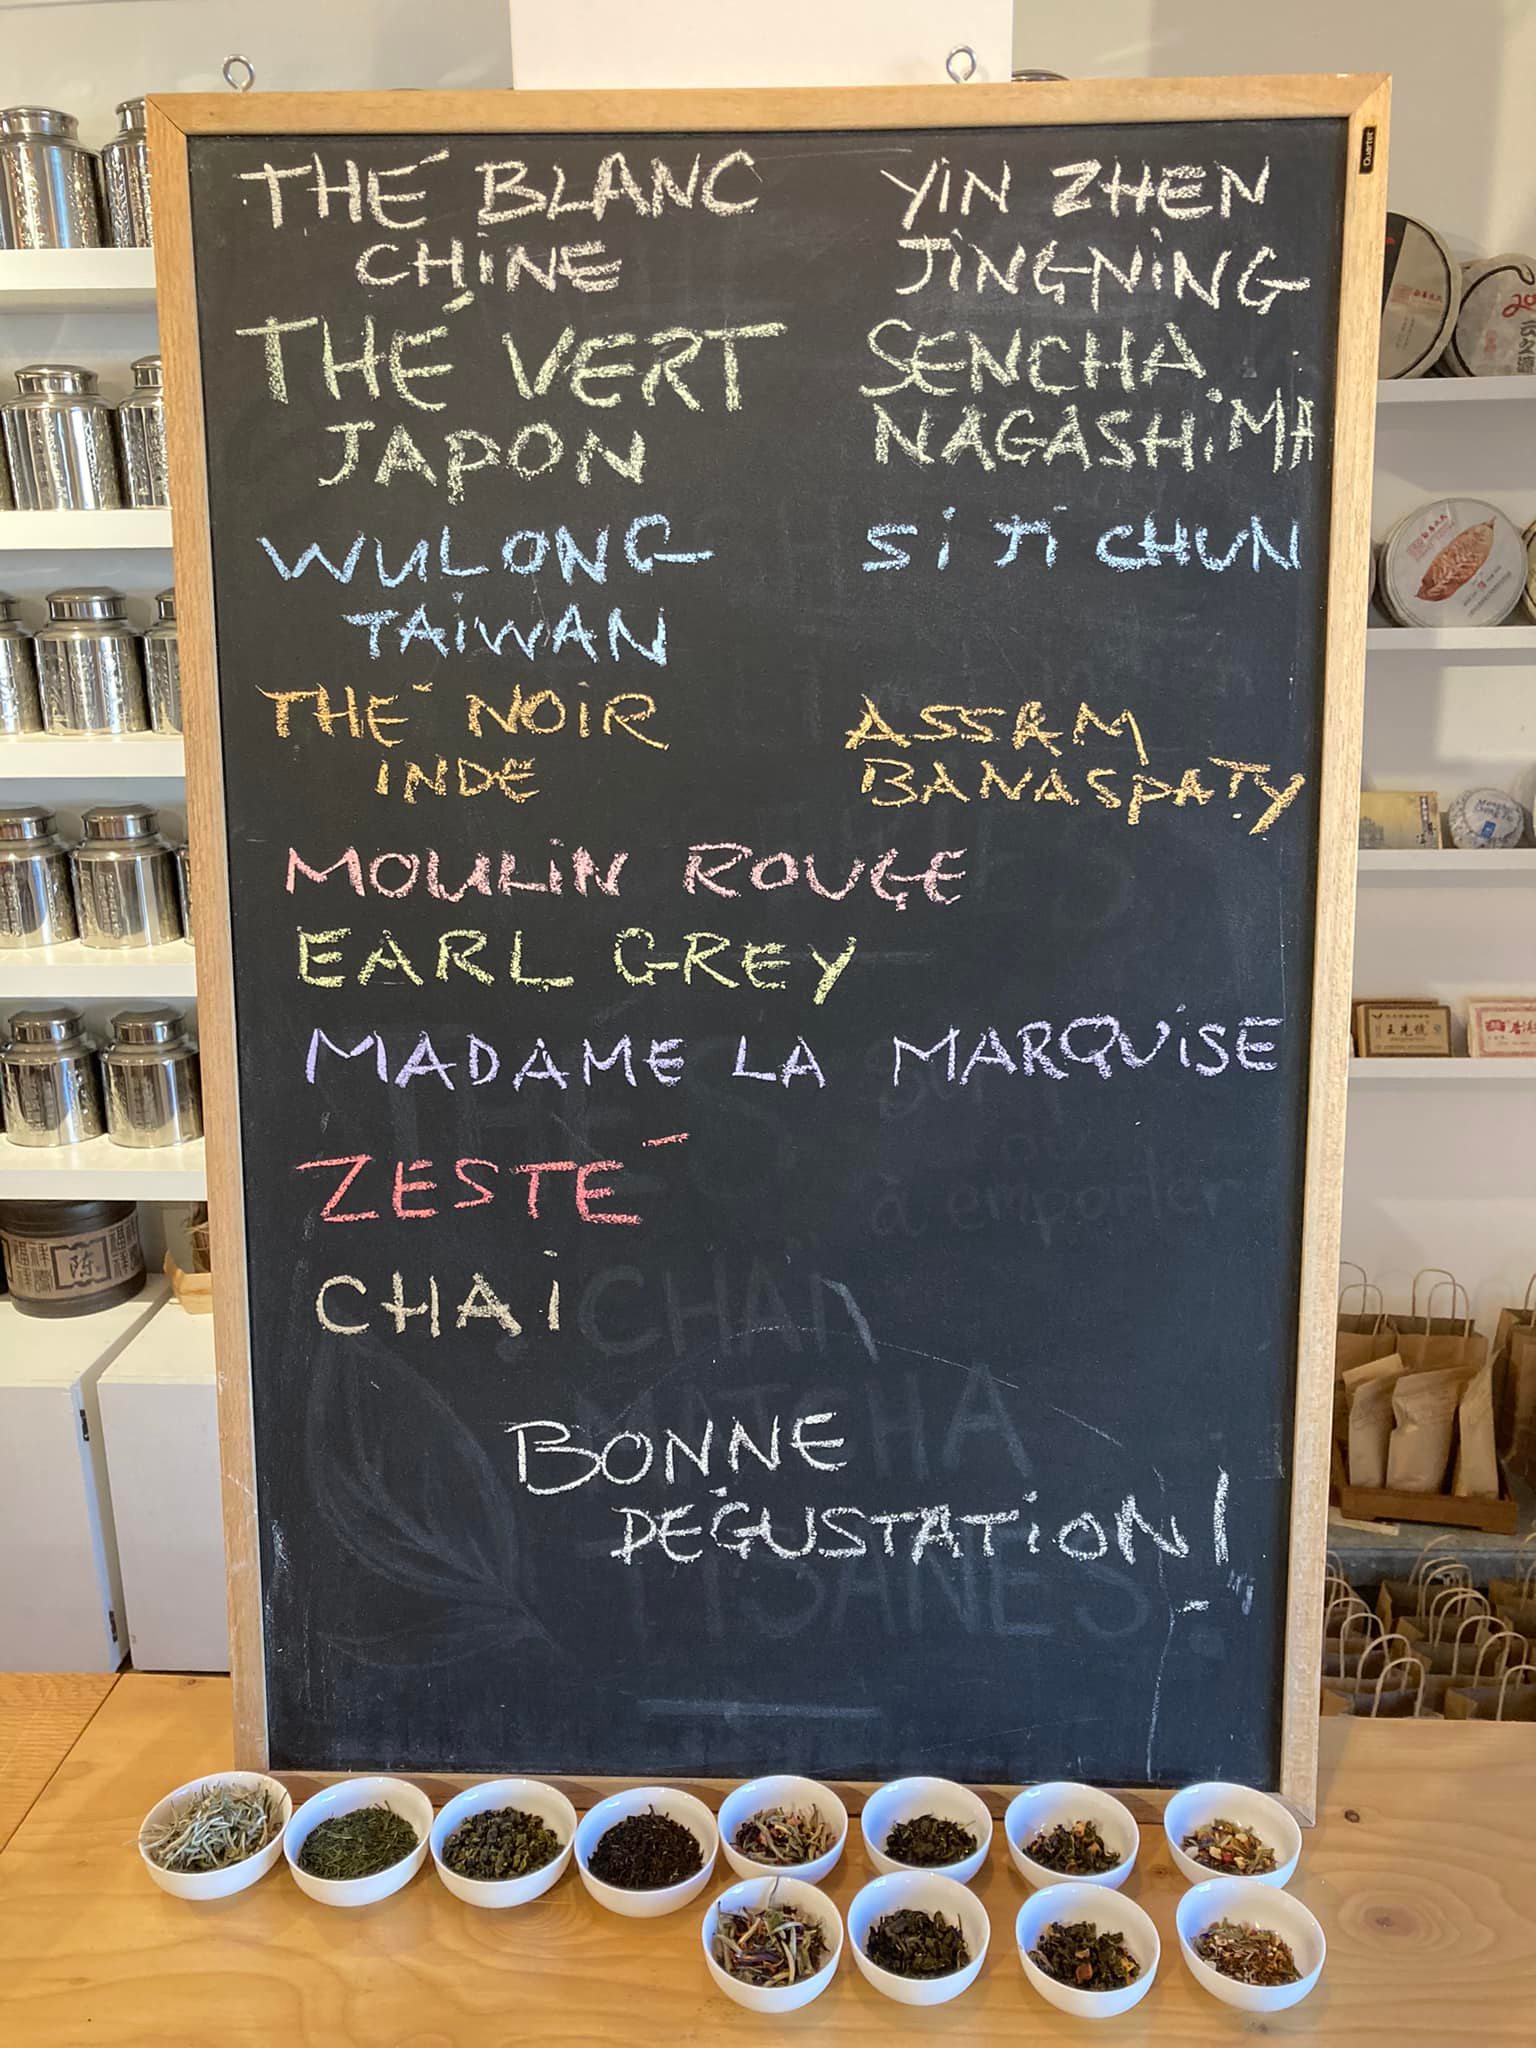 THÉ BLANC YIN ZHEN
CHINE JINGNING
THÉ VERT SENCHA
JAPON NAGASHIMA
WULONG SI JI CHUN
TAIWAN
THÉ NOIR ASSAM
INDE BANASPATY
MOULIN ROUGE
EARL GREY
MADAME LA MARQUISE
ZESTÉ
CHAI
BONNE
DÉGUSTATION!
à emporter
CHAÏ
MATCHA
TISANES
Quartet
陈